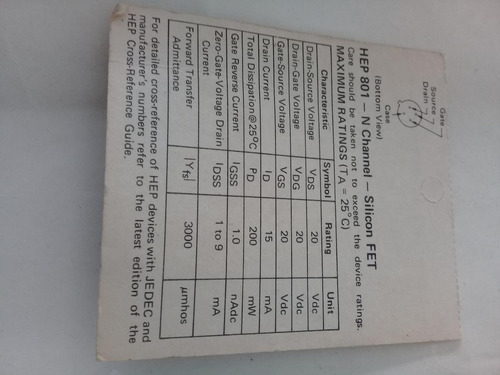 Gate
Source
Drain
Case
(Bottom View)
HEP 801 – N Channel – Silicon FET
Care should be taken not to exceed the device ratings.
MAXIMUM RATINGS (TA = 25°C)
Characteristic Symbol Rating Unit
Drain-Source Voltage VDS 20 Vdc
Drain-Gate Voltage VDG 20 Vdc
Gate-Source Voltage VGS 20 Vdc
Drain Current ID 15 mA
Total Dissipation@25°C PD 200 mW
Gate Reverse Current IGSS 1.0 nAdc
Zero-Gate-Voltage Drain IDSS 1 to 9 mA
Current
Forward Transfer |Yfs| 3000 µmhos
Admittance
For detailed cross-reference of HEP devices with JEDEC and
manufacturer's numbers refer to the latest edition of the
HEP Cross-Reference Guide.